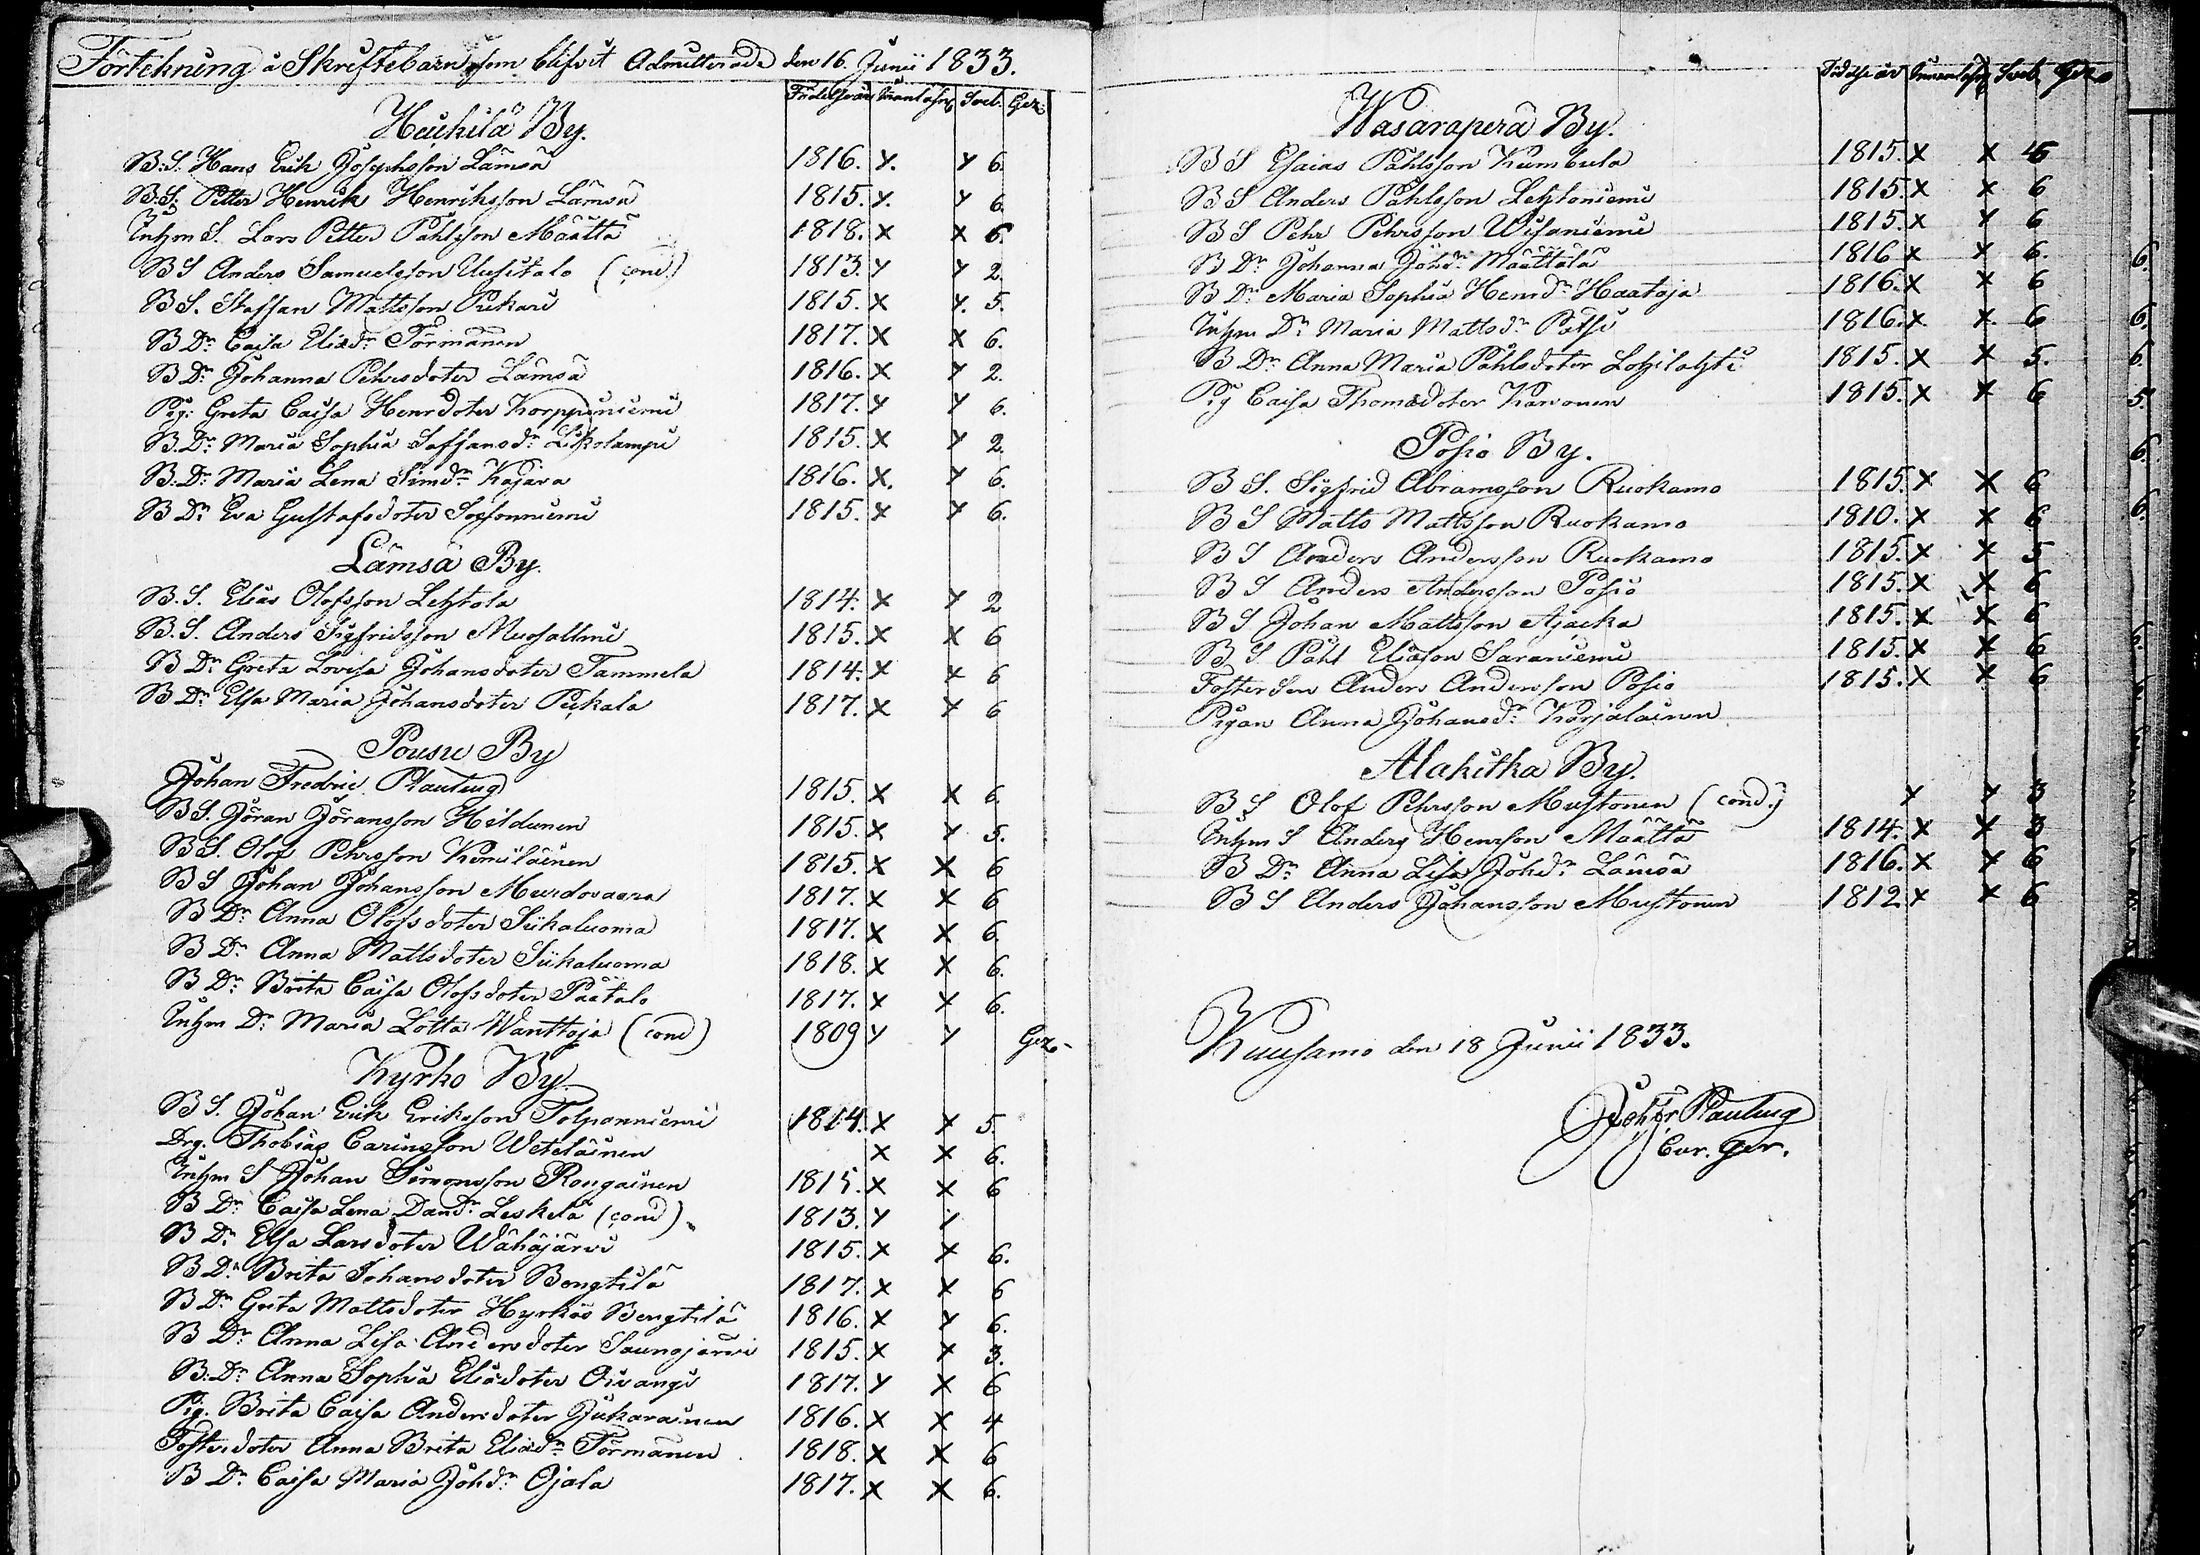 Förtekning å Skriftebarn som blifvit Admitterade den 16. Junii 1833.
Födelseår Innanläsn Sveb. Gez.
Heikilä By.
B:S: Hans Erik Josephsson Lämsä 1816. x. x 6.
B:S: Petter Henrik Henriksson Lämsä 1815. x. x 6.
Inhm S. Lars Petter Påhlsson Määttä 1818. x x 6.
B S Anders Samuelsson Uusitalo (cond) 1813. x x 2.
B S. Staffan Mattsson Pukari 1815. x x. 5.
B Dr Caisa Eliedr Törmänen 1817. x x 6.
B Dr Johanna Pehrsdoter Lämsä 1816. x x 2.
Pig: Greta Caisa Henrdoter Korppuniemi 1817. x x 6.
B. Dr Maria Sophia Saffansdr Likolampi 1815. x x 2.
B: Dr Maria Lena Simdr Kajava 1816. x. x 6.
B Dr Eva Gustafsdoter Sossonniemi 1815. x x 6.
Lämsä By.
B. S. Elias Olofsson Lehtola 1814. x x 2
B. S. Anders Sigfridsson Muosallmi 1815. x x 6
B Dr Greta Lovisa Johansdoter Tammela 1814. x x 6
B Dr Elsa Maria Johansdoter Pukala 1817. x x 6
Pousu By
Johan Fredric Planting 1815. x x 6.
B S. Jöran Jöransson Hildunen 1815. x x 5.
B S. Olof Pehrsson Kemiläinen 1815. x x 6
B S Johan Johansson Murdovaara 1817. x x 6
B Dr Anna Olofsdoter Siikaluoma 1817. x x 6.
B Dr Anna Mattsdoter Siikaluoma 1818. x x 6.
B Dr Brita Caisa Olofsdoter Päätalo 1817. x x 6.
Inhm Dr Maria Lotta Wanttaja (cond) 1809 x x Gez.
Kyrko By.
B S. Johan Erik Eriksson Tolpanniemi 1814. x x 5.
Drg. Thobias Carinsson Weteläinen x x 6.
Inhm S Johan Simonsson Rongainen 1815. x x 6
B Dr Caisa Lena Dandr Leskelä (cond) 1813. x 1
B Dr Elsa Larsdoter Wähäjärvi 1815. x x 6.
B Dr Brita Johansdoter Bengtilä 1817. x x 6
B Dr Greta Mattsdoter Hyrkäs Bengtilä 1816. x x 6.
B Dr Anna Lisa Andersdoter Saunajärvi 1815. x x 3.
B. Dr Anna Sophia Eliedoter Oivangi 1817. x x 6
Pig. Brita Caisa Andersdoter Jukarainen 1816. x x 4
Fosterdoter Anna Brita Eliedr Törmänen 1818. x x 6
B Dr Caisa Maria Johdr Ojala 1817. x x 6.
Födelseår Innanläsn Sveb. Gez.
Wasarapera By.
B S Esaias Påhlsson Kumbula 1815. x x 6
B S Anders Påhlsson Lehtoniemi 1815. x x 6
B S Pehr Pehrsson Wisaniemi 1815. x x 6
B Dr Johanna Johdr Määttälä 1816 x x 6.
B Dr Maria Sophia Henrdr Haataja 1816. x x 6
Inhm Dr Maria Mattsdr Pätsi 1816. x x 6
B Dr Anna Maria Påhlsdoter Lohilahti 1815. x x 5.
Pig Caisa Thomedoter Karvonen 1815. x x 6
Posio By.
B S. Sigfrid Abramsson Ruokamo 1815. x x 6
B S Matts Mattsson Ruokamo 1810. x x 6
B S Anders Andersson Ruokamo 1815. x x 5
B S Anders Andersson Posio 1815. x x 6
B S Johan Mattsson Ajacka 1815. x x 6
B S Påhl Eliesson Saraniemi 1815. x x 6
Foster Son Anders Andersson Posio 1815. x x 6
Pigan Anna Johansdr Karjalainen
Alakitka By.
B S Olof Pehrsson Mustonen (cond.) x x 3
Inhm S Anders Henrson Määttä 1814. x x 3
B Dr Anna Lisa Johdr Lämsä 1816. x x 6
B S Anders Johansson Mustonen 1812 x x 6
Kuusamo den 18 Junii 1833.
Joh: Fr. Planting
Cur. ger.